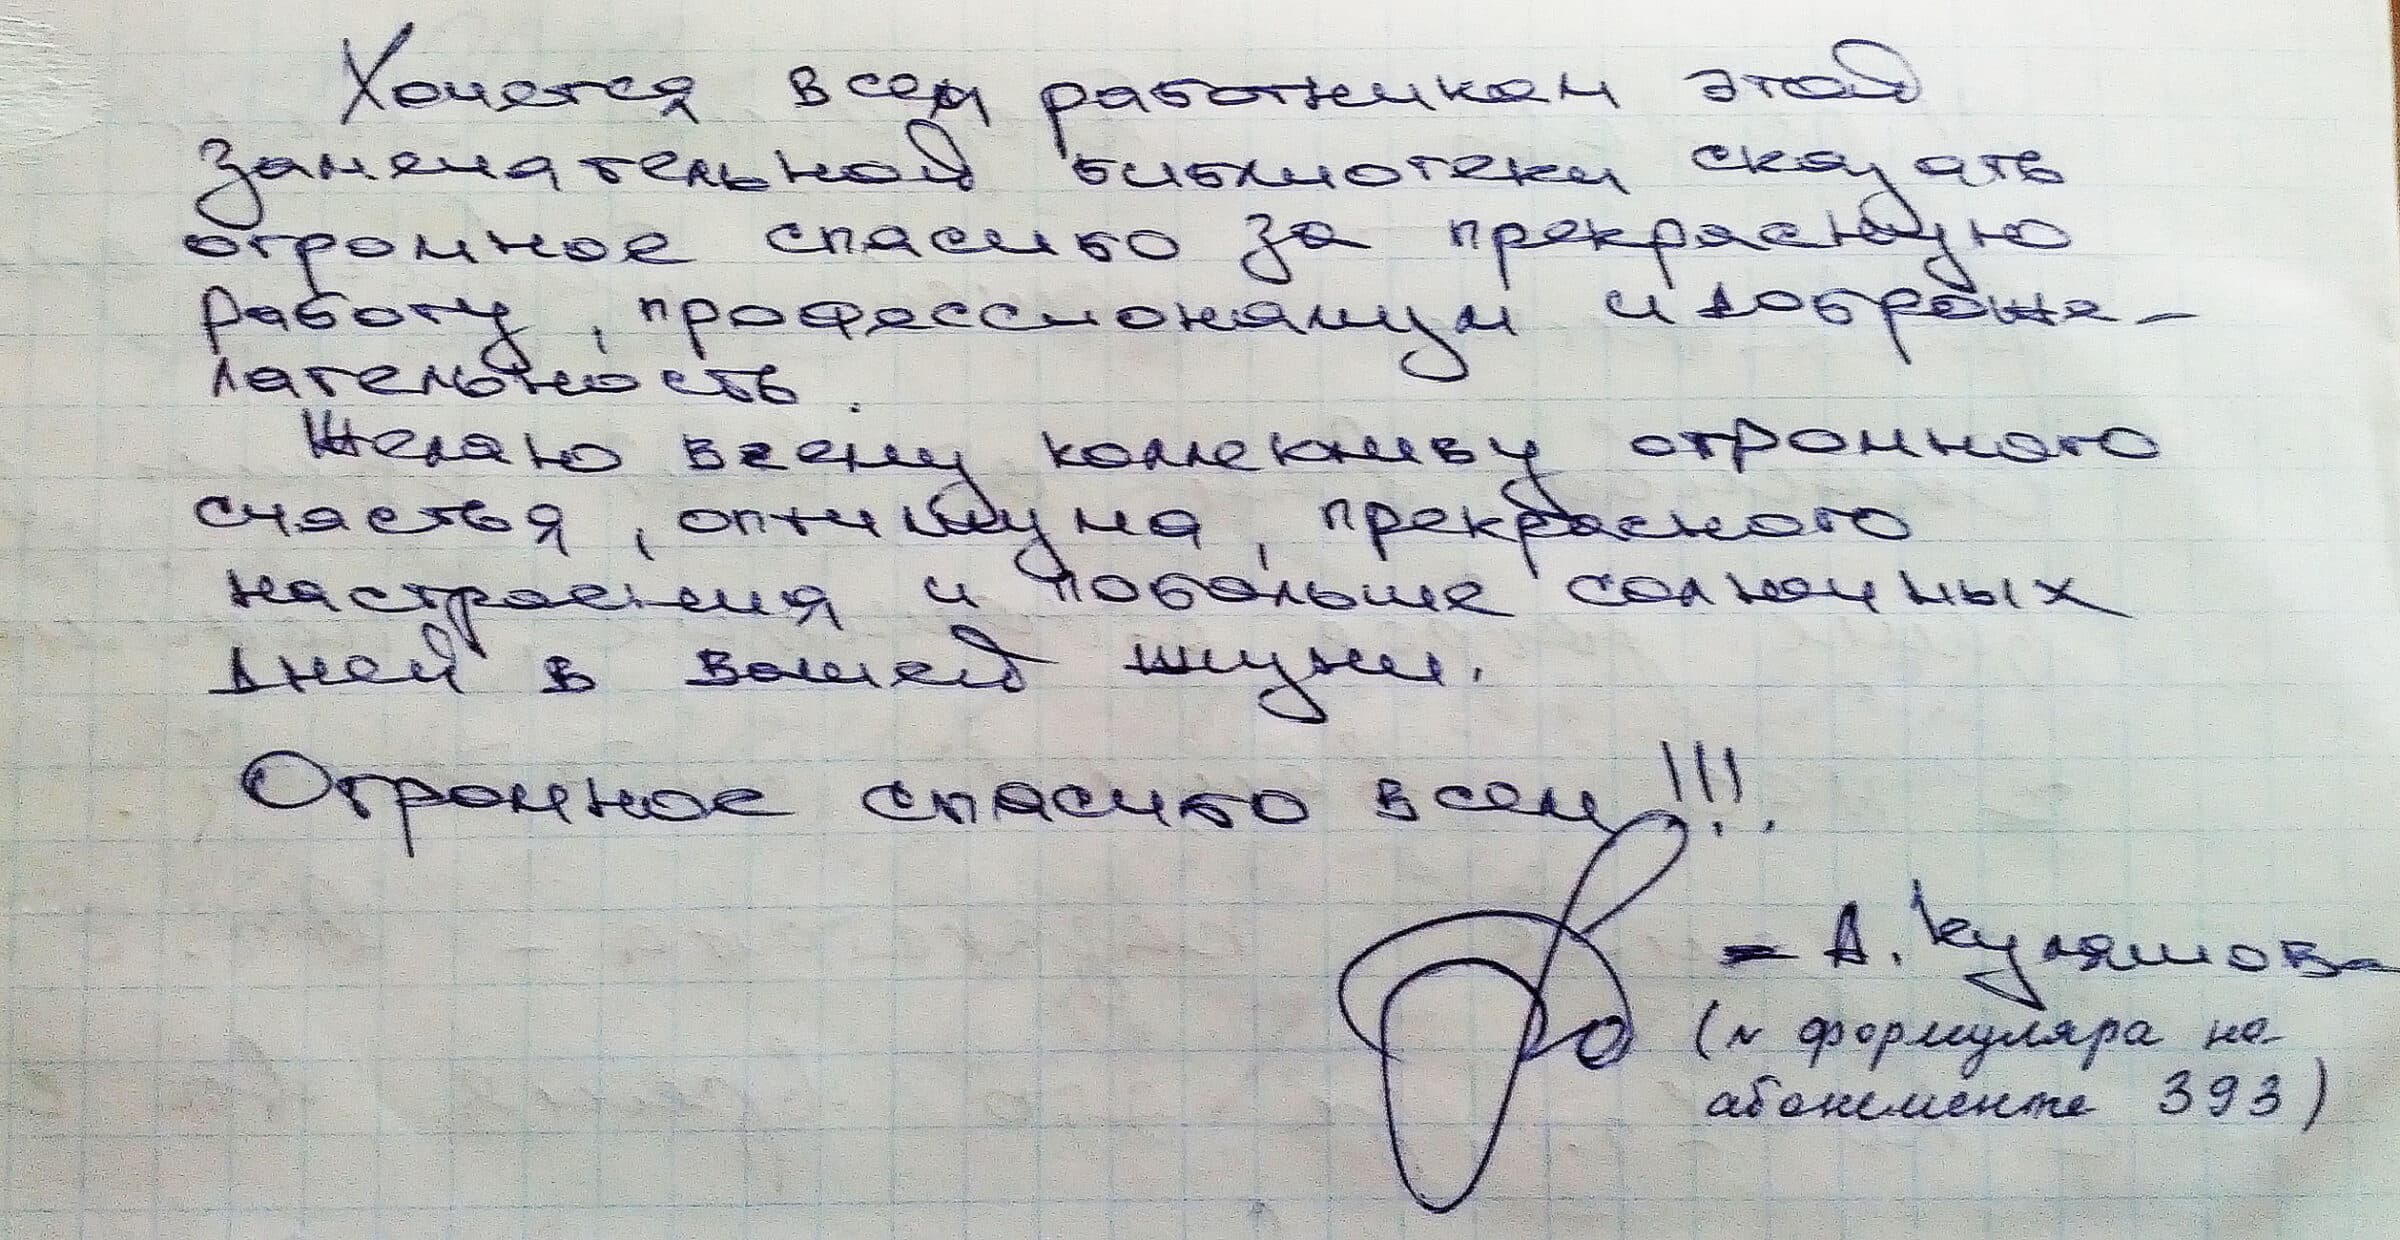 Хочется всем работникам этой
замечательной библиотеки сказать
огромное спасибо за прекрасную
работу, профессионализм и доброже-
лательность.
Желаю всему коллективу огромного
счастья, оптимизма, прекрасного
настроения и побольше солнечных
дней в вашей жизни.
Огромное спасибо всем!!!
- А. Куляшова
(№ формуляра на
абонементе 393)